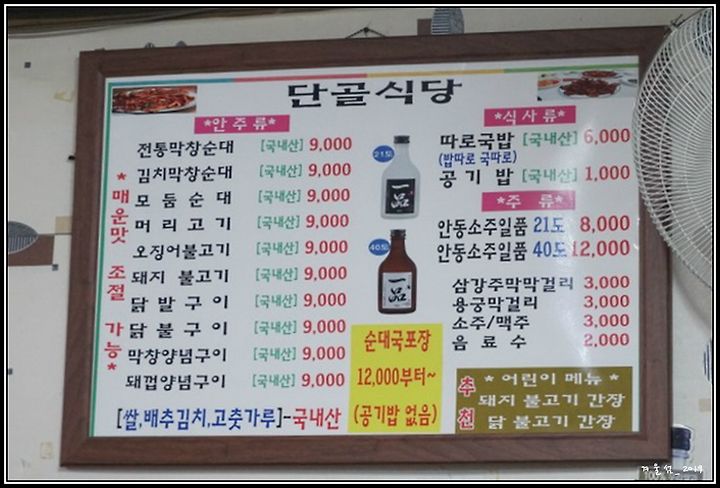 단골식당
*안 주 류*
전통막창순대 [국내산] 9,000
김치막창순대 [국내산] 9,000
모 듬 순 대 [국내산] 9,000
머 리 고 기 [국내산] 9,000
오징어불고기 [국내산] 9,000
돼지 불고기 [국내산] 9,000
닭 발 구 이 [국내산] 9,000
닭 불 구 이 [국내산] 9,000
막창양념구이 [국내산] 9,000
돼껍양념구이 [국내산] 9,000
*매운맛 조절 가능*
[쌀,배추김치,고춧가루]-국내산
21도
一品
40도
一品
순대국포장
12,000부터~
(공기밥 없음)
*식사류*
따로국밥 [국내산] 6,000
(밥따로 국따로)
공 기 밥 [국내산] 1,000
*주 류*
안동소주일품 21도 8,000
안동소주일품 40도 12,000
삼강주막막걸리 3,000
용궁막걸리 3,000
소주/맥주 3,000
음 료 수 2,000
추천
* 어린이 메뉴 *
돼지 불고기 간장
닭 불고기 간장